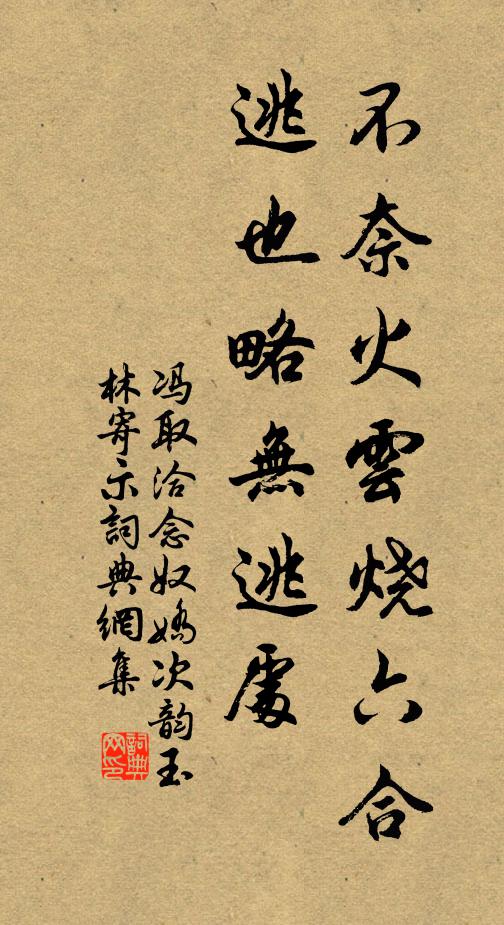 不奈火雲烧六合
逃也略無逃處
冯取洽念奴嬌次韵玉
林寄示詞典網集
詞典
网印